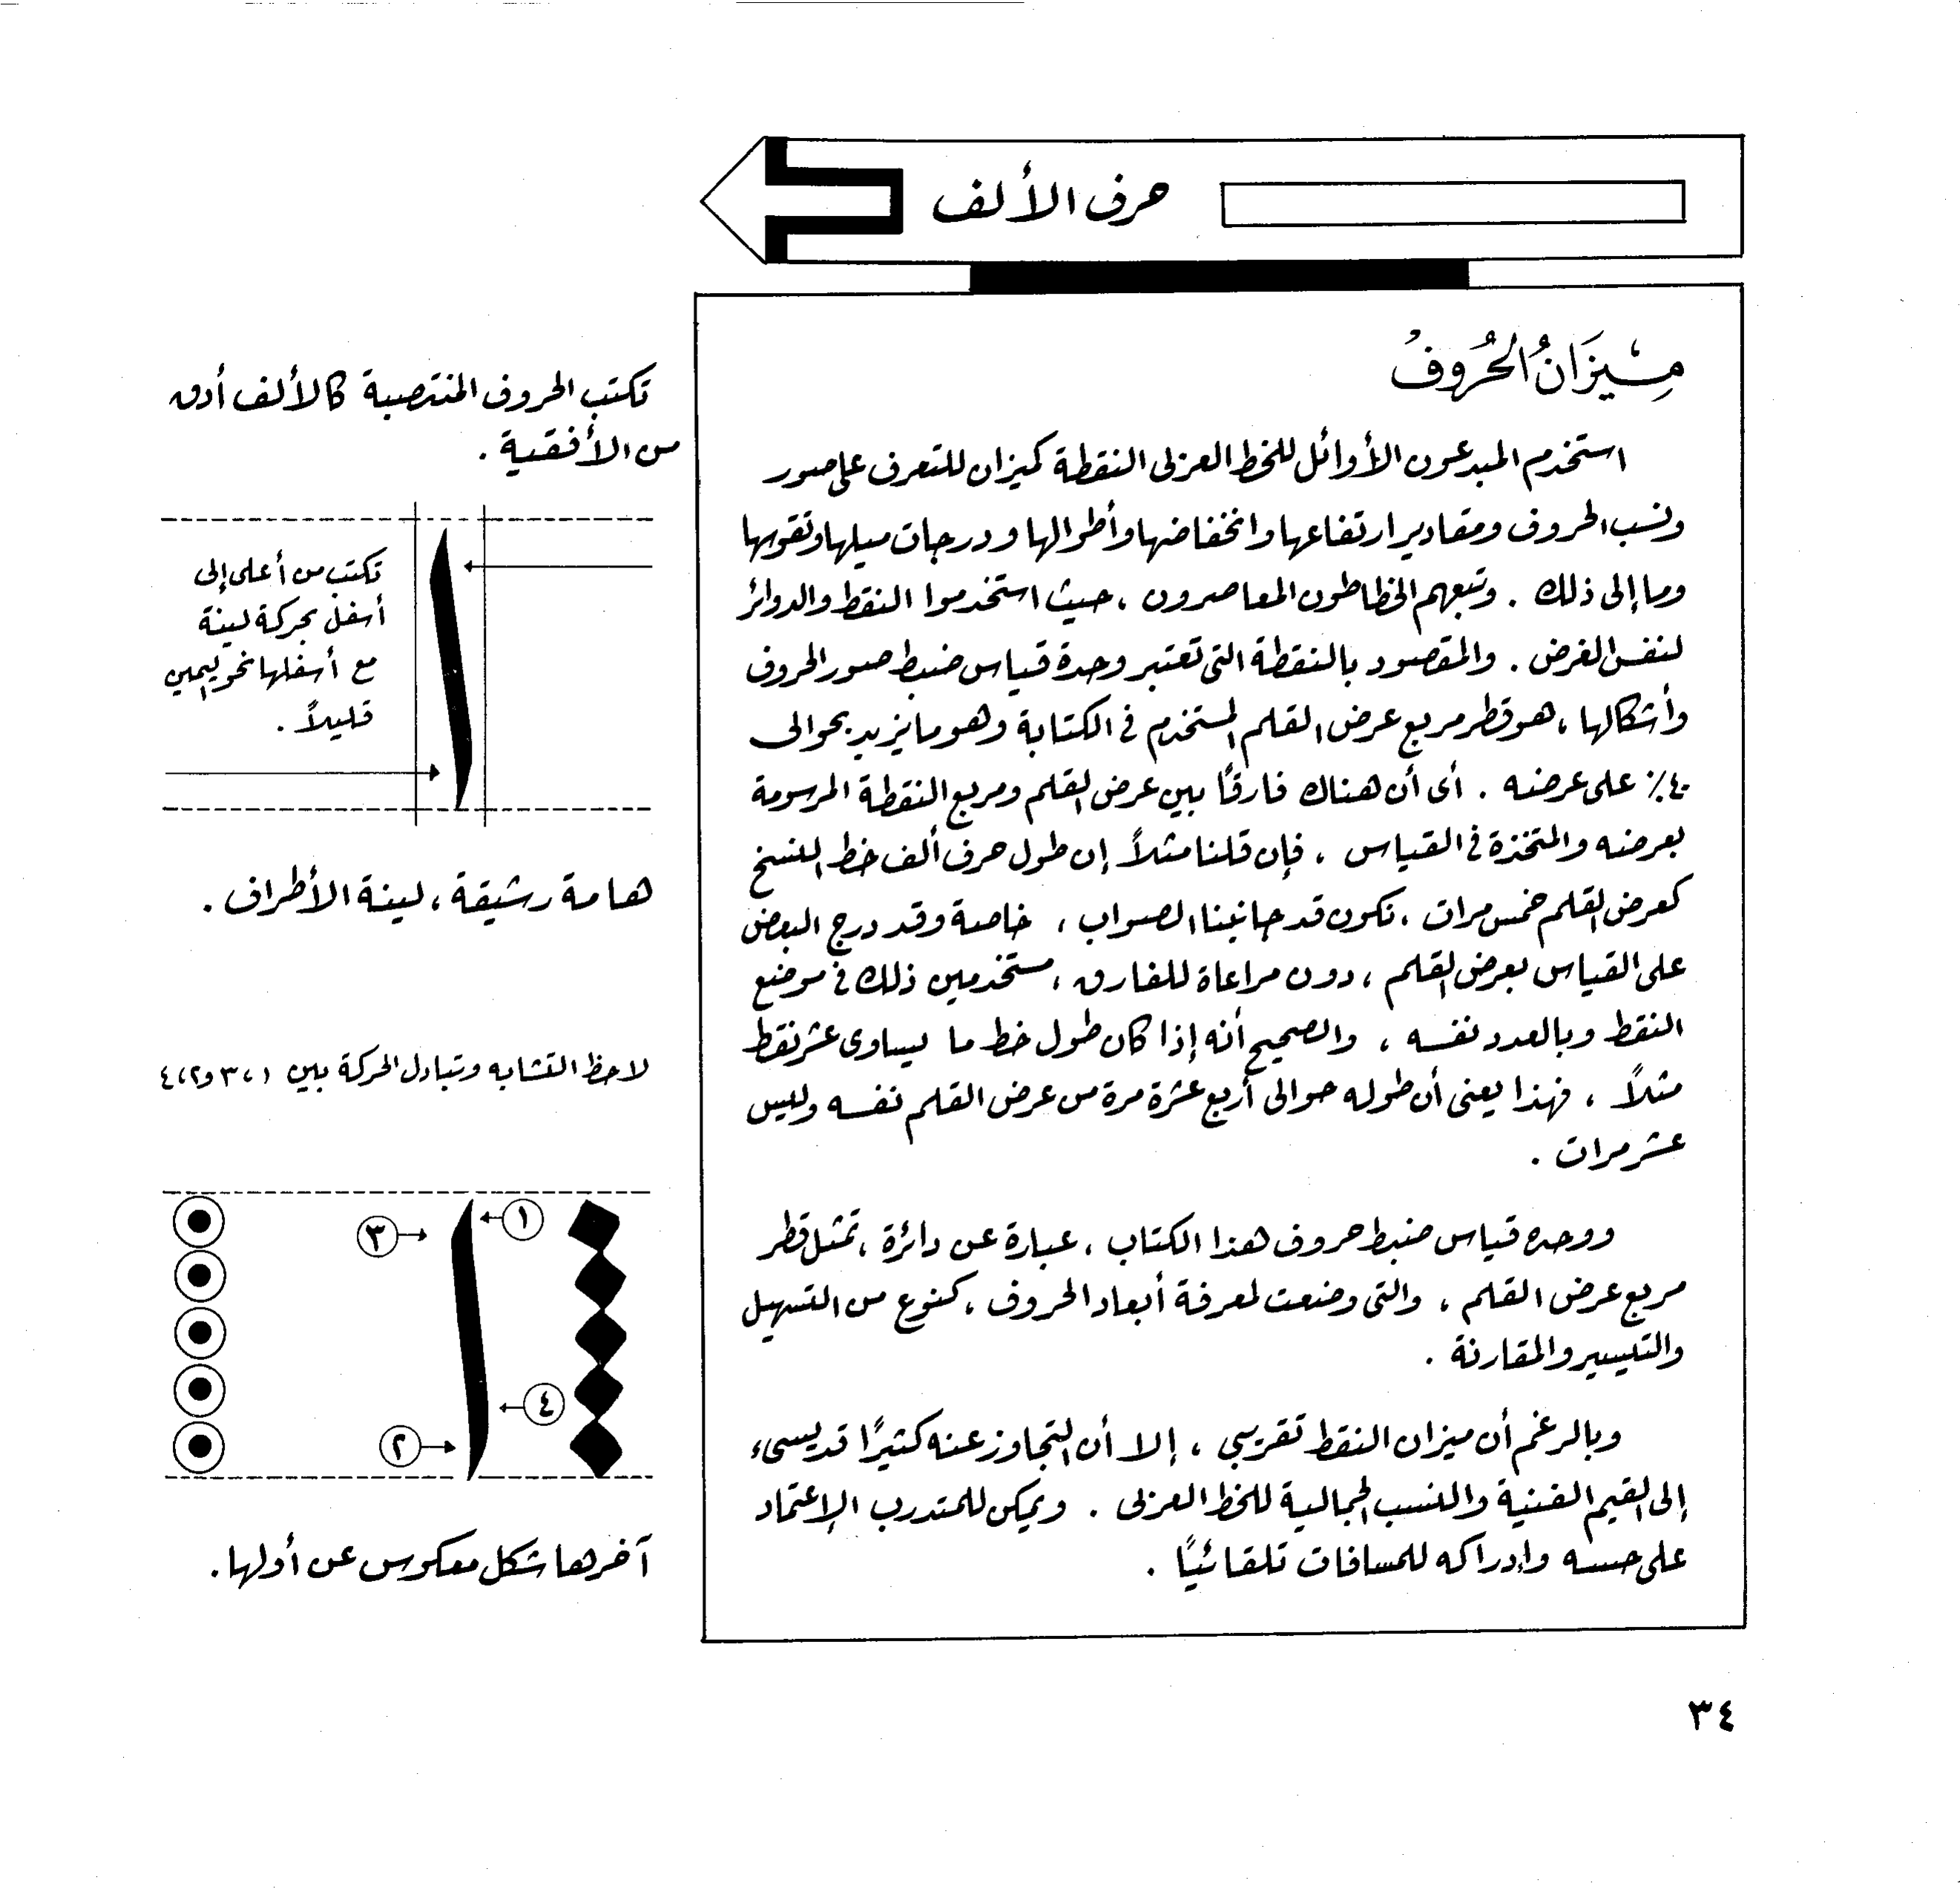 حرف الألف
مِيزَانُ الحُرُوفُ
استخدم المبدعون الأوائل للخط العربى النقطة كميزان للتعرف على صور
ونسب الحروف ومقادير ارتفاعها وانخفاضها وأطوالها ودرجات ميلها وتقوسها
وما إلى ذلك . وتبعهم الخطاطون المعاصرون ، حيث استخدموا النقط والدوائر
لنفس الغرض . والمقصود بالنقطة التى تعتبر وحدة قياس ضبط صور الحروف
وأشكالها ، هو قطر مربع عرض القلم المستخدم فى الكتابة وهو ما يزيد بحوالى
٤٠٪ على عرضه . أى أن هناك فارقاً بين عرض القلم ومربع النقطة المرسومة
بعرضه والمتخذة فى القياس ، فإن قلنا مثلاً إن طول حرف ألف خط النسخ
كعرض القلم خمس مرات ، نكون قد جانبنا الصواب ، خاصة وقد درج البعض
على القياس بعرض القلم ، دون مراعاة للفارق ، مستخدمين ذلك فى موضع
النقط وبالعدد نفسه ، والصحيح أنه إذا كان طول خط ما يساوى عشر نقط
مثلاً ، فهذا يعنى أن طوله حوالى أربع عشرة مرة من عرض القلم نفسه وليس
عشر مرات .
ووحده قياس ضبط حروف هذا الكتاب ، عبارة عن دائرة ، تمثل قطر
مربع عرض القلم ، والتى وضعت لمعرفة أبعاد الحروف ، كنوع من التسهيل
والتيسير والمقارنة .
وبالرغم أن ميزان النقط تقريبى ، إلا أن التجاوز عنه كثيرًا قد يسىء
إلى القيم الفنية والنسب الجمالية للخط العربى . ويمكن للمتدرب الإعتماد
على حسه وإدراكه للمسافات تلقائيًا .
تكتب الحروف المنتصبة كالألف أدق
من الأفقية .
تكتب من أعلى إلى
أسفل بحركة لينة
مع أسفلها نحو اليمين
قليلاً .
هامة رشيقة ، لينة الأطراف .
لاحظ التشابه وتبادل الحركة بين ١ ، ٣ و٢ ، ٤
١
٣
٤
٢
آخرها شكل معكوس عن أولها .
٣٤